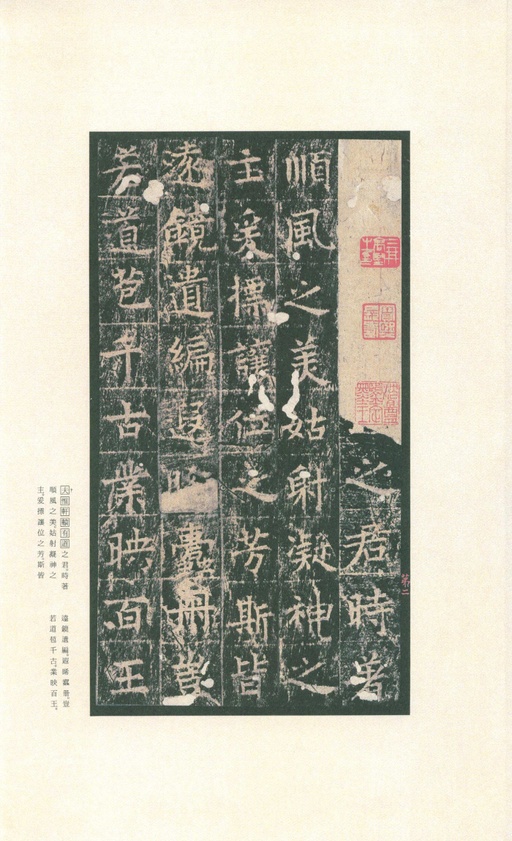 之君時著
順風之美姑射凝神之
主爰標讓位之芳斯皆
遠鏡遺編遐晞蠹冊豈
若道苞千古業映百王
之君,時著
順風之美;姑射凝神之
主,爰標讓位之芳。斯皆
遠鏡遺編,遐晞蠹冊。豈
若道苞千古,業映百王。